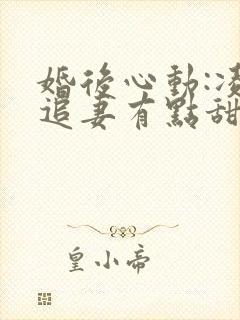 婚後心動:凌
追妻有點甜
皇小帝